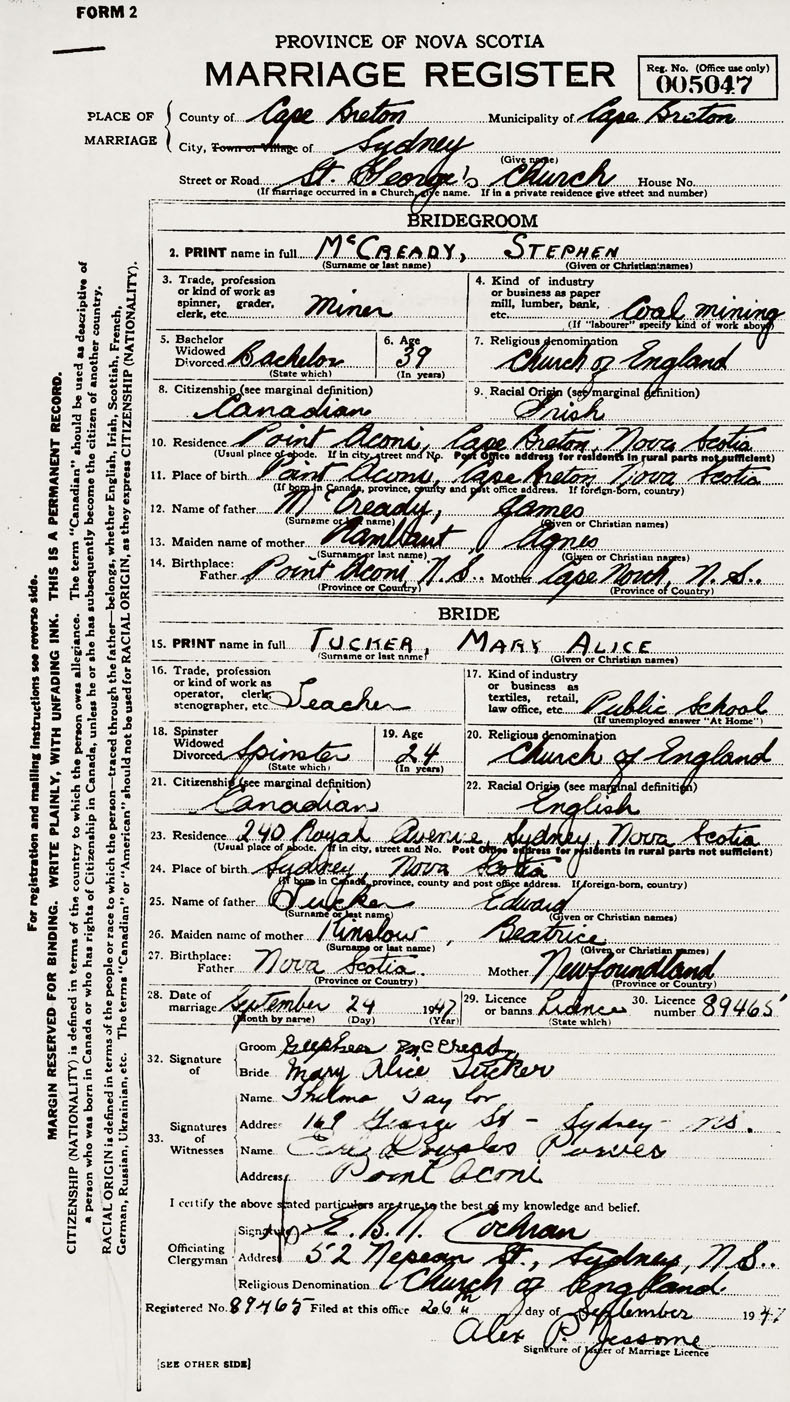 FORM 2
PROVINCE OF NOVA SCOTIA
MARRIAGE REGISTER
Reg. No. (Office use only)
005047
PLACE OF MARRIAGE
County of Cape Breton Municipality of Cape Breton
City, Town or Village of Sydney
(Give name)
Street or Road St. George's Church House No.
(If marriage occurred in a Church, give name. If in a private residence give street and number)
BRIDEGROOM
2. PRINT name in full McCREADY, STEPHEN
(Surname or last name) (Given or Christian names)
3. Trade, profession or kind of work as spinner, grader, clerk, etc. Miner
4. Kind of industry or business as paper mill, lumber, bank, etc. Coal mining
(If "labourer" specify kind of work above)
5. Bachelor Widowed Divorced Bachelor
(State which)
6. Age 39
(In years)
7. Religious denomination
Church of England
8. Citizenship (see marginal definition)
Canadian
9. Racial Origin (see marginal definition)
Irish
10. Residence Point Aconi, Cape Breton, Nova Scotia
(Usual place of abode. If in city, street and No. Post Office address for residents in rural parts not sufficient)
11. Place of birth Point Aconi, Cape Breton Nova Scotia
(If born in Canada, province, county and post office address. If foreign-born, country)
12. Name of father McCready, James
(Surname or last name) (Given or Christian names)
13. Maiden name of mother Agnes
(Surname or last name) (Given or Christian names)
14. Birthplace: Father Point Aconi, N.S. Mother Cape North, N.S.
(Province or Country) (Province of Country)
BRIDE
15. PRINT name in full TUCKER, MARY ALICE
(Surname or last name) (Given or Christian names)
16. Trade, profession or kind of work as operator, clerk, stenographer, etc. Teacher
17. Kind of industry or business as textiles, retail, law office, etc. Public School
(If unemployed answer "At Home")
18. Spinster Widowed Divorced Spinster
(State which)
19. Age 24
(In years)
20. Religious denomination
Church of England
21. Citizenship (see marginal definition)
Canadian
22. Racial Origin (see marginal definition)
English
23. Residence 240 Royal Avenue, Sydney, Nova Scotia
(Usual place of abode. If in city, street and No. Post Office address for residents in rural parts not sufficient)
24. Place of birth Sydney, Nova Scotia
(If born in Canada, province, county and post office address. If foreign-born, country)
25. Name of father Tucker Edward
(Surname or last name) (Given or Christian names)
26. Maiden name of mother Kinslow, Beatrice
(Surname or last name) (Given or Christian names)
27. Birthplace: Father Nova Scotia. Mother Newfoundland
(Province or Country) (Province or Country)
28. Date of marriage September 24 1947
(Month by name) (Day) (Year)
29. Licence or banns Licence
(State which)
30. Licence number 89465
32. Signature of
Groom Stephen McCready
Bride Mary Alice Tucker
33. Signatures of Witnesses
Name Thelma Taylor
Address 169 George St - Sydney - N.S.
Name Douglas Purves
Address Point Aconi
I certify the above stated particulars are true to the best of my knowledge and belief.
Officiating Clergyman
Signature E. B. N. Cochran
Address 52 Nepean St., Sydney, N.S.
Religious Denomination Church of England
Registered No. 89465 Filed at this office 26th day of September 1947
Alex P. Jessome
Signature of Issuer of Marriage Licence
[SEE OTHER SIDE]
For registration and mailing instructions see reverse side.
MARGIN RESERVED FOR BINDING. WRITE PLAINLY, WITH UNFADING INK. THIS IS A PERMANENT RECORD.
CITIZENSHIP (NATIONALITY) is defined in terms of the country to which the person owes allegiance. The term "Canadian" should be used as descriptive of
a person who was born in Canada or who has rights of Citizenship in Canada, unless he or she has subsequently become the citizen of another country.
RACIAL ORIGIN is defined in terms of the people or race to which the person—traced through the father—belongs, whether English, Irish, Scottish, French,
German, Russian, Ukrainian, etc. The terms "Canadian" or "American" should not be used for RACIAL ORIGIN, as they express CITIZENSHIP (NATIONALITY).